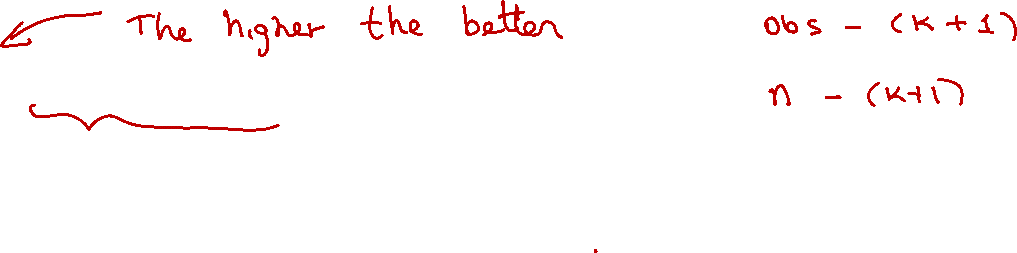 The higher the better
obs - (k + 1)
n - (k+1)